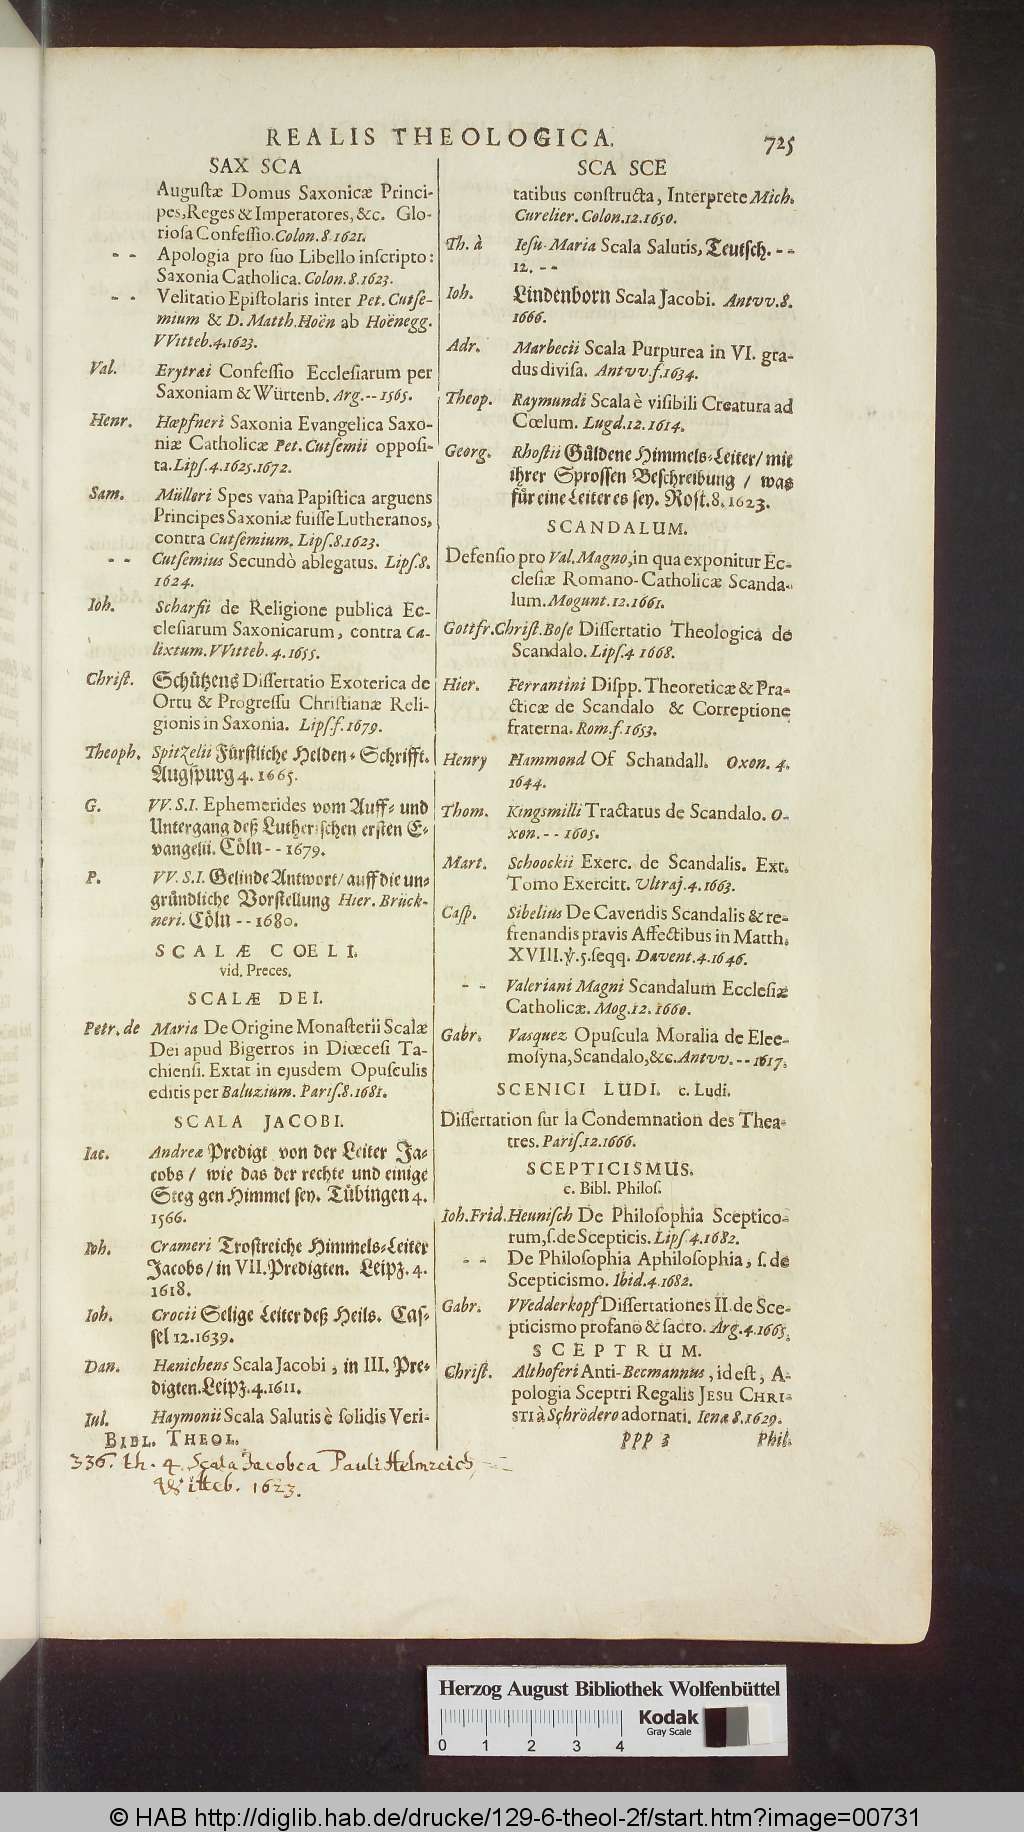 REALIS THEOLOGICA.
725
SAX SCA
Augustæ Domus Saxonicæ Princi-
pes, Reges & Imperatores, &c. Glo-
riosa Confessio. Colon. 8. 1621.
- - Apologia pro suo Libello inscripto:
Saxonia Catholica. Colon. 8. 1623.
- - Velitatio Epistolaris inter Pet. Cutse-
mium & D. Matth. Hoën ab Hoënegg.
VVitteb. 4. 1623.
Val. Erytræi Confessio Ecclesiarum per
Saxoniam & Würtenb. Arg. -- 1565.
Henr. Hœpfneri Saxonia Evangelica Saxo-
niæ Catholicæ Pet. Cutsemii opposi-
ta. Lips. 4. 1625. 1672.
Sam. Mülleri Spes vana Papistica arguens
Principes Saxoniæ fuisse Lutheranos,
contra Cutsemium. Lips. 8. 1623.
- - Cutsemius Secundò ablegatus. Lips. 8.
1624.
Ioh. Scharfii de Religione publica Ec-
clesiarum Saxonicarum, contra Ca-
lixtum. VVitteb. 4. 1655.
Christ. Schützens Dissertatio Exoterica de
Ortu & Progressu Christianæ Reli-
gionis in Saxonia. Lips. f. 1679.
Theoph. Spitzelii Fürstliche Helden-Schrifft.
Augspurg 4. 1665.
G. VV. S. I. Ephemerides vom Auff- und
Untergang deß Lutherischen ersten E-
vangelii. Cöln -- 1679.
P. VV. S. I. Gelinde Antwort / auff die un-
gründliche Vorstellung Hier. Brück-
neri. Cöln -- 1680.
SCALÆ COELI.
vid. Preces.
SCALÆ DEI.
Petr. de Maria De Origine Monasterii Scalæ
Dei apud Bigerros in Diœcesi Ta-
chiensi. Extat in ejusdem Opusculis
editis per Baluzium. Paris. 8. 1681.
SCALA JACOBI.
Iac. Andreæ Predigt von der Leiter Ja-
cobs / wie das der rechte und einige
Steg gen Himmel sey. Tübingen 4.
1566.
Ioh. Crameri Trostreiche Himmels-Leiter
Jacobs / in VII. Predigten. Leipz. 4.
1618.
Ioh. Crocii Selige Leiter deß Heils. Cas-
sel 12. 1639.
Dan. Hænichens Scala Jacobi, in III. Pre-
digten. Leipz. 4. 1611.
Iul. Haymonii Scala Salutis è solidis Veri-
BIBL. THEOL.
336. th. 4. Scala Jacobea Pauli Helmreich
Witteb. 1623.
SCA SCE
tatibus constructa, Interprete Mich.
Curelier. Colon. 12. 1650.
Th. à Iesu-Maria Scala Salutis, Teutsch. - -
12. - -
Ioh. Lindenborn Scala Jacobi. Antvv. 8.
1666.
Adr. Marbecii Scala Purpurea in VI. gra-
dus divisa. Antvv. f. 1634.
Theop. Raymundi Scala è visibili Creatura ad
Cœlum. Lugd. 12. 1614.
Georg. Rhostii Güldene Himmels-Leiter / mit
ihrer Sprossen Beschreibung / was
für eine Leiter es sey. Rost. 8. 1623.
SCANDALUM.
Defensio pro Val. Magno, in qua exponitur Ec-
clesiæ Romano-Catholicæ Scanda-
lum. Mogunt. 12. 1661.
Gottfr. Christ. Bose Dissertatio Theologica de
Scandalo. Lips. 4 1668.
Hier. Ferrantini Dispp. Theoreticæ & Pra-
cticæ de Scandalo & Correptione
fraterna. Rom. f. 1653.
Henry Hammond Of Schandall. Oxon. 4.
1644.
Thom. Kingsmilli Tractatus de Scandalo. O-
xon. - - 1605.
Mart. Schoockii Exerc. de Scandalis. Ext.
Tomo Exercitt. Ultraj. 4. 1663.
Casp. Sibelius De Cavendis Scandalis & re-
frenandis pravis Affectibus in Matth.
XVIII. ℣. 5. seqq. Davent. 4. 1646.
- - Valeriani Magni Scandalum Ecclesiæ
Catholicæ. Mog. 12. 1660.
Gabr. Vasquez Opuscula Moralia de Elee-
mosyna, Scandalo, &c. Antvv. -- 1617.
SCENICI LUDI. c. Ludi.
Dissertation sur la Condemnation des Thea-
tres. Paris. 12. 1666.
SCEPTICISMUS.
c. Bibl. Philos.
Ioh. Frid. Heunisch De Philosophia Sceptico-
rum, s. de Scepticis. Lips. 4. 1682.
- - De Philosophia Aphilosophia, s. de
Scepticismo. Ibid. 4. 1682.
Gabr. VVedderkopf Dissertationes II. de Sce-
pticismo profano & sacro. Arg. 4. 1665.
SCEPTRUM.
Christ. Althoferi Anti-Becmannus, id est, A-
pologia Sceptri Regalis JESU CHRI-
STI à Schrödero adornati. Ienæ 8. 1629.
PPP 3 Phil.
Herzog August Bibliothek Wolfenbüttel
0 1 2 3 4
Kodak
Gray Scale
© HAB http://diglib.hab.de/drucke/129-6-theol-2f/start.htm?image=00731